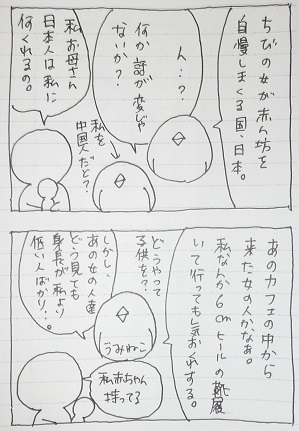 ちびの女が赤ん坊を
自慢しまくる国、日本。
ん…?
何か話が変じゃ
ないか?
私を
中国人だと?
私お母さん
日本人は私に
何くれるの。
あのカフェの中から
来た女の人かなぁ。
私なんか6cmヒールの靴履
いて行っても気おくれする。
どうやって
子供を??
しかし、
あの女の人達
どう見ても
身長が私より
低い人ばかり…。
うみねこ
私赤ちゃん
持ってる